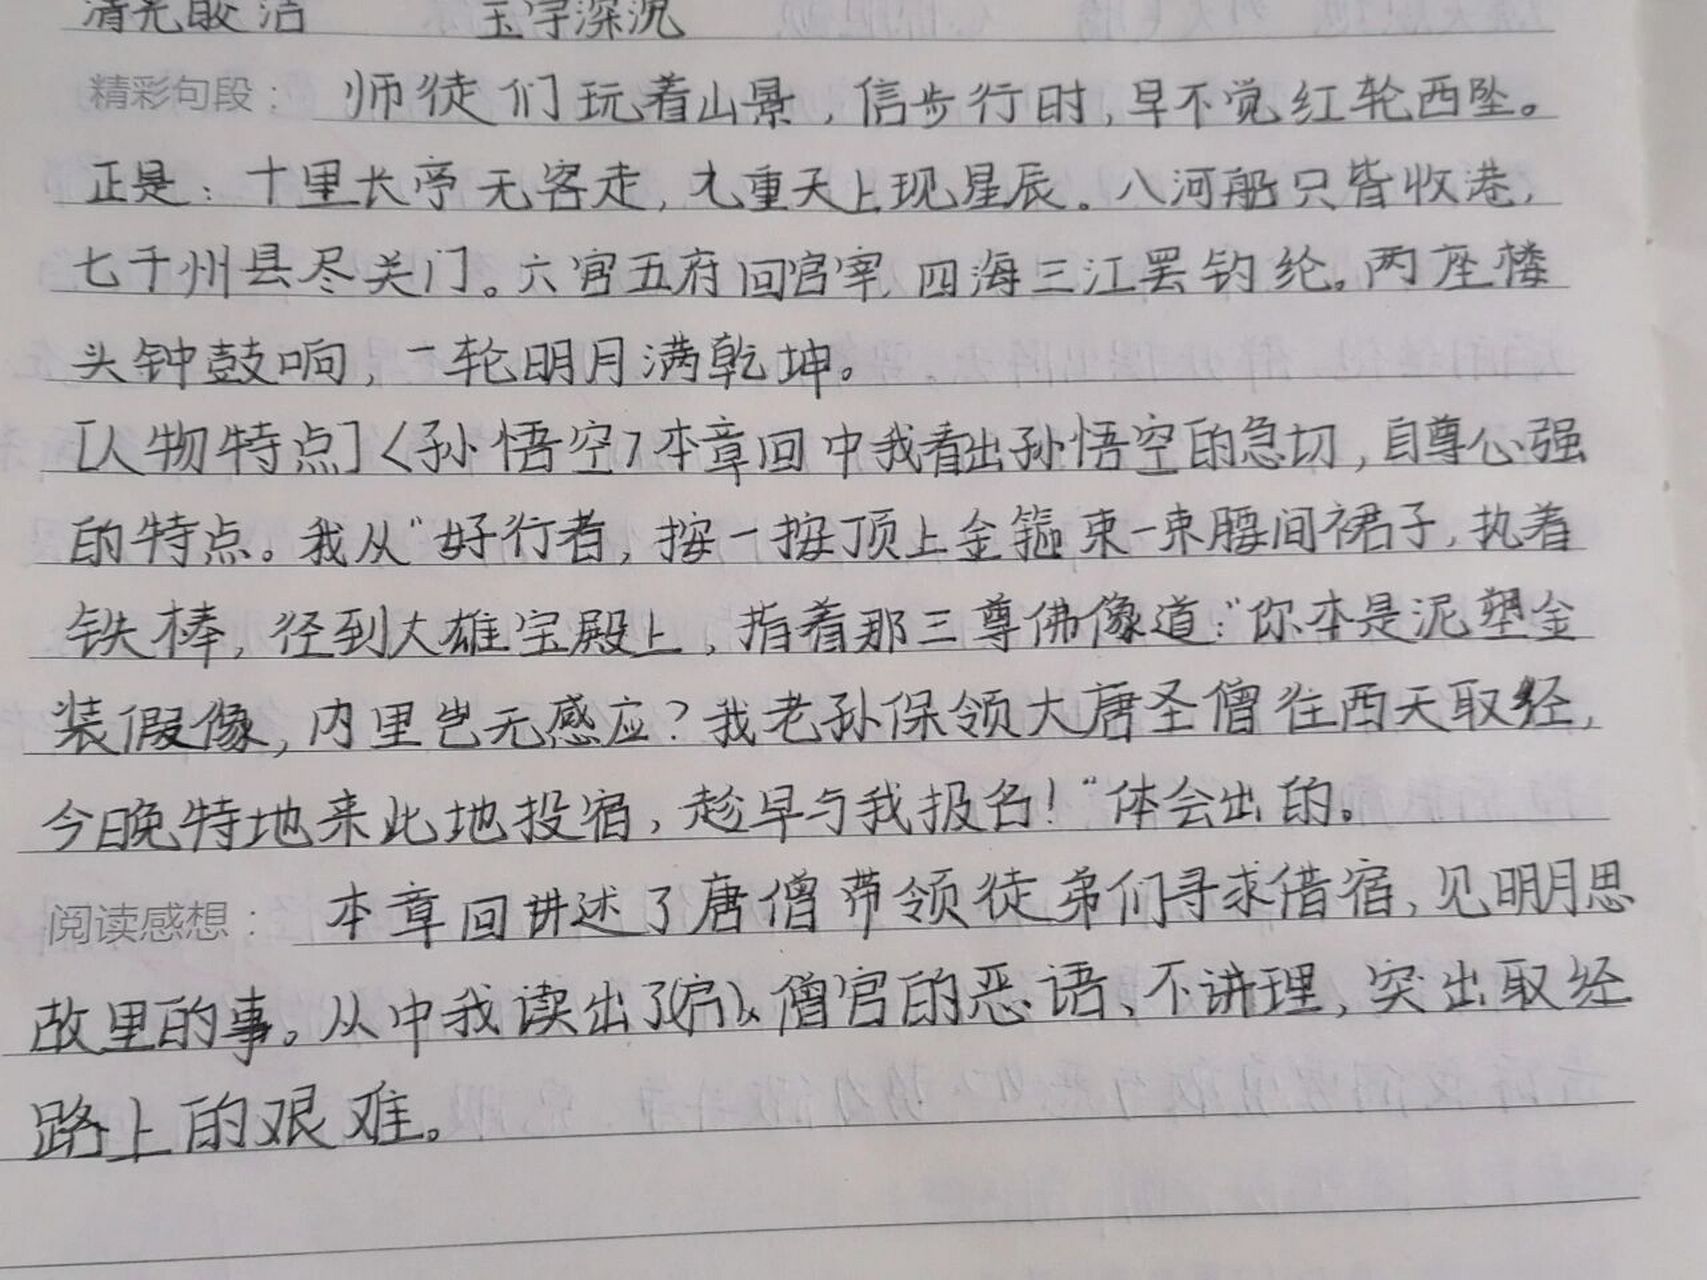 清光皎洁 玉宇深沉
精彩句段： 师徒们玩着山景，信步行时，早不觉红轮西坠。
正是：十里长亭无客走，九重天上现星辰。八河船只皆收港，
七千州县尽关门。六宫五府回官宰，四海三江罢钓纶。两座楼
头钟鼓响，一轮明月满乾坤。
[人物特点]〈孙悟空〉本章回中我看出孙悟空的急切，自尊心强
的特点。我从“好行者，按一按顶上金箍束一束腰间裙子，执着
铁棒，径到大雄宝殿上，指着那三尊佛像道：“你本是泥塑金
装假像，内里岂无感应？我老孙保领大唐圣僧往西天取经，
今晚特地来此地投宿，趁早与我报名！”体会出的。
阅读感想： 本章回讲述了唐僧带领徒弟们寻求借宿，见明月思
故里的事。从中我读出了僧官的恶语、不讲理，突出取经
路上的艰难。